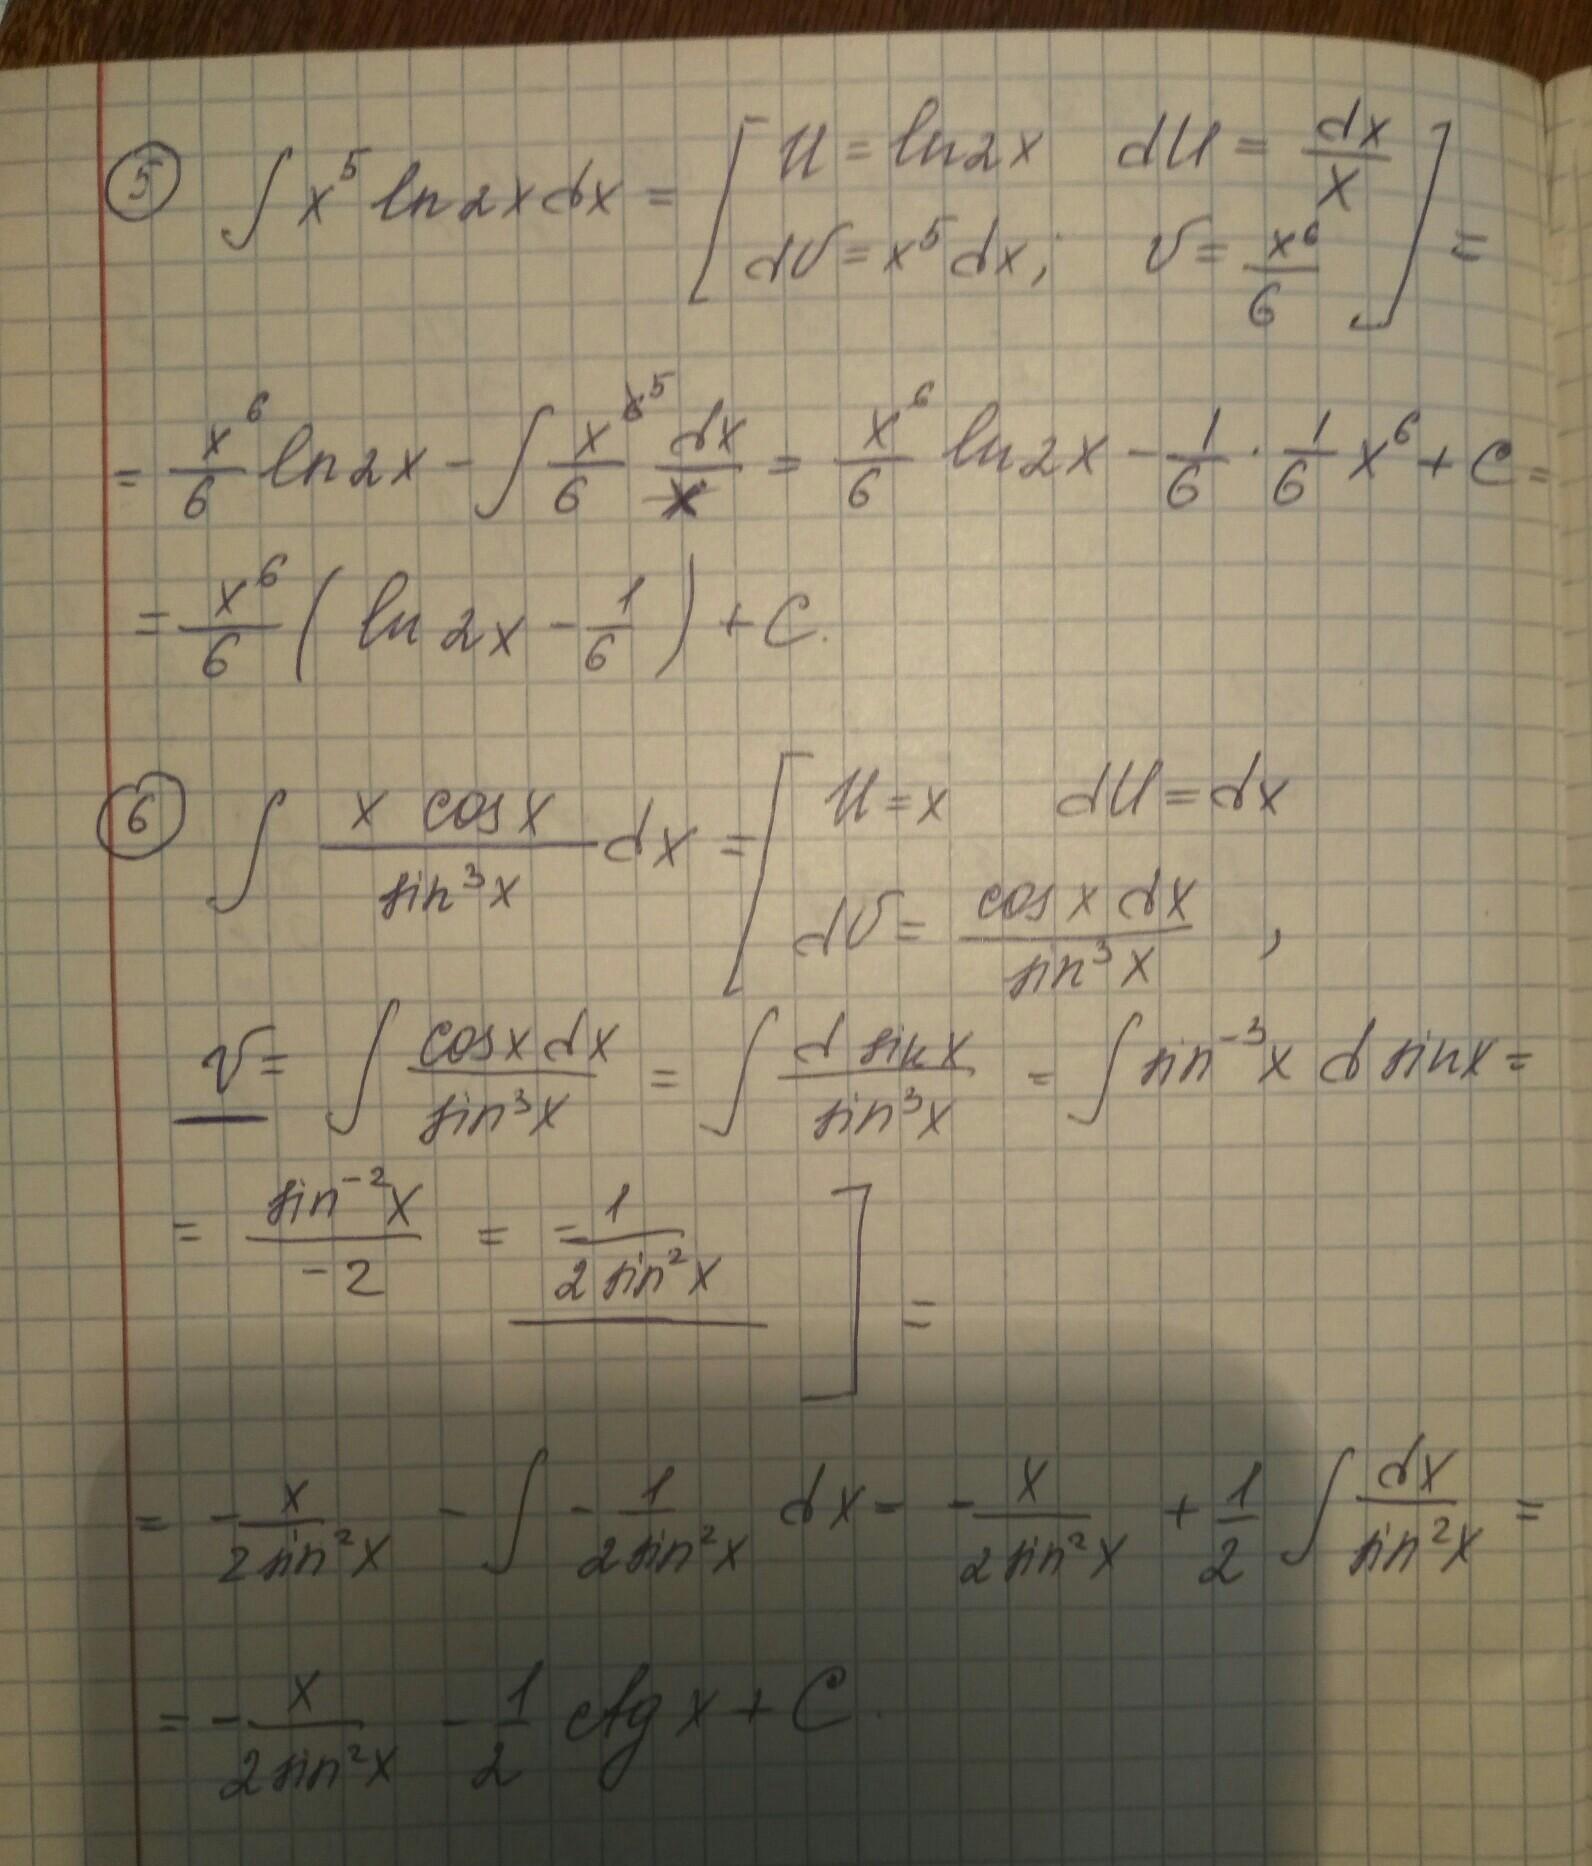 ⑤ ∫ x⁵ ln 2x dx = [ U = ln 2x   dU = dx/x
dV = x⁵ dx;   V = x⁶/6 ] =
= x⁶/6 ln 2x - ∫ x⁵/6 dx/x = x⁶/6 ln 2x - 1/6 · 1/6 x⁶ + C =
= x⁶/6 ( ln 2x - 1/6 ) + C.
⑥ ∫ x cos x / sin³x dx = [ U = x   dU = dx
dV = cos x dx / sin³x ,
V = ∫ cos x dx / sin³x = ∫ d sin x / sin³x = ∫ sin⁻³x d sin x =
= sin⁻²x / -2 = -1 / 2 sin²x ] =
= - x / 2 sin²x - ∫ - 1 / 2 sin²x dx = - x / 2 sin²x + 1/2 ∫ dx / sin²x =
= - x / 2 sin²x - 1/2 ctg x + C.